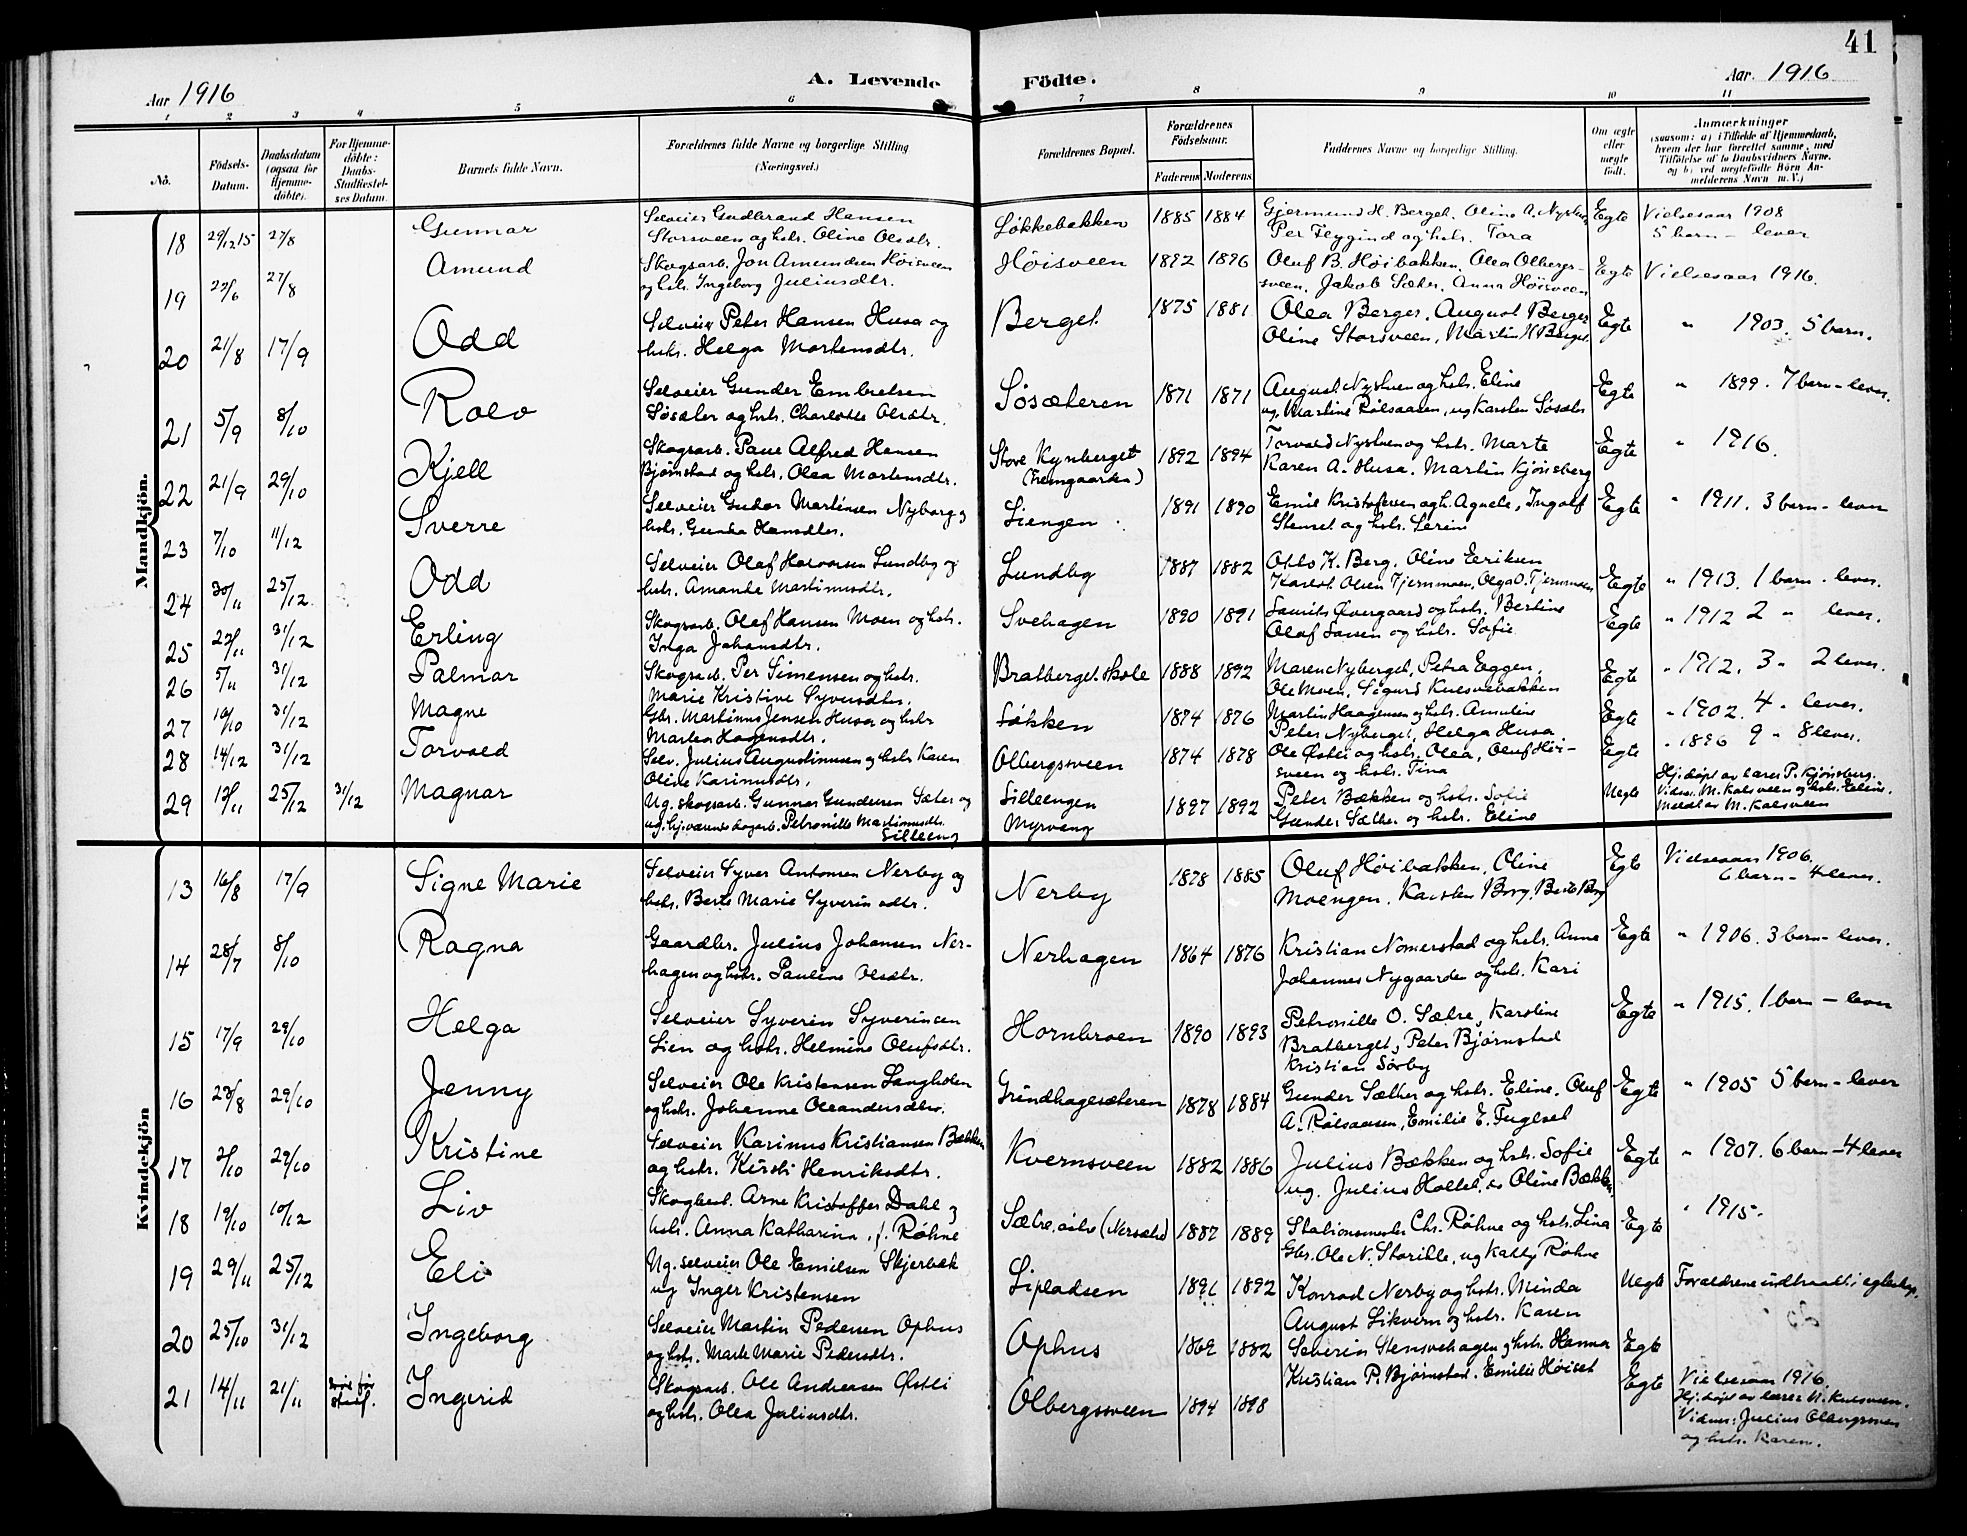 41
Aar 1916
A. Levende Födte.
Aar 1916
1 2 3 4 5 6 7 8 9 10 11
No.
Födsels-
Datum.
Daabsdatum
(ogsaa for
Hjemme-
döbte).
For Hjemme-
döbte:
Daabs-
Stadfæstel-
ses Datum.
Barnets fulde Navn.
Forældrenes fulde Navne og borgerlige Stilling
(Næringsvei.)
Forældrenes Bopæl.
Forældrenes
Födselsaar.
Faderens Moderens
Faddernes Navne og borgerlige Stilling.
Om ægte
eller
uægte
födt.
Anmærkninger
(saasom: a) i Tilfælde af Hjemmedaab,
hvem der har forrettet samme, med
Tilföielse af to Daabsvidners Navne,
og b) ved uægtefödte Börn An-
melderens Navn m. V.)
Mandkjön.
18 29/12 15 27/8 Gunnar
Selveier Gudbrand Hansen
Storsveen og hstr. Oline Olsdtr.
Løkkebakken 1885 1884
Gjermund H. Berget. Oline A. Nystuen
Per Flygind og hstr. Tora
Egte
Vielsesaar 1908
5 barn - lever
19 22/6 27/8 Amund
Skogsarb. Jon Amundsen Høisveen
og hstr. Ingeborg Juliusdtr.
Høisveen 1892 1896
Oluf B. Høibakken. Olea Olbergs-
sveen. Jakob Sæter. Anna Høisveen
Egte Vielsesaar 1916.
20 21/8 17/9 Odd
Selveier Peter Hansen Husa og
hstr. Helga Mortensdtr.
Berget 1875 1881
Olea Berger. August Berger
Oline Storsveen, Martin H Berget
Egte " 1903. 5 barn.
21 5/9 8/10 Rolv
Selveier Gunder Embretsen
Søsæter og hstr. Charlotte Olsdtr.
Søsæteren 1871 1871
August Nystuen og hstr. Eline
ug. Martine Rølsaasen, ug Karsten Søsæter
Egte " 1899. 7 barn - lever.
22 21/9 29/10 Kjell
Skogsarb. Paul Alfred Hansen
Bjørnstad og hstr. Olea Mortensdtr.
Store Kynberget
(Fremgaarden)
1892 1894
Torvald Nystuen og hstr. Marte
Karen A. Husa. Martin Kjønsberg
Egte " 1916.
23 7/10 11/12 Sverre
Selveier Gudor Martinsen Nyborg og
hstr. Gunda Hansdtr.
Liengen 1891 1890
Emil Kristofersen og h. Agnete, Ingolf
Stenset og hstr. Serine
Egte " 1911. 3 barn - lever
24 30/11 25/12 Odd
Selveier Olaf Halvorsen Lundby og
hstr. Amanda Martinusdtr.
Lundby 1887 1882
Otto K. Berg. Oline Eriksen
Karlot Olsen Tjernmoen, Olga O. Tjernmoen
Egte " 1913. 1 barn - lever.
25 22/11 31/12 Erling
Skogsarb. Olaf Hansen Moen og hstr.
Inga Johansdtr.
Svehagen 1890 1891
Laurits Øvergaard og hstr. Bertine
Olaf Løven og hstr. Sofie
Egte " 1912 2 " lever.
26 5/11 31/12 Palmar
Skogsarb. Per Simensen og hstr.
Marie Kristine Syversdtr.
Bratberget skole 1888 1892
Maren Nyberget, Petra Eggen,
Ole Moen, Sigurd Kulsvebakken
Egte " 1912. 3 " 2 lever.
27 10/10 31/12 Magne
Gbr. Martinus Jensen Husa og hstr
Martea Hagensdtr.
Løkken 1874 1876
Martin Haagensen og hstr. Amalie
Peter Nyberget, Helga Husa
Egte " 1902. 4 " lever.
28 14/12 31/12 Torvald
Selv. Julius Augustinusen og hstr Karen
Oline Karinusdtr.
Olbergsveen 1874 1878
Ole Østli og hstr. Olea, Oluf Høi-
sveen og hstr. Tina
Egte " 1896 9 " 8 lever.
29 12/11 25/12 31/12 Magnar
Ug. skogsarb. Gunnar Gundersen Sæter og
ug. hj.værende dagarb. Petronille Martinusdtr.
Lilleeng
Lilleengen
Myrvang
1897 1892
Peter Bækken og hstr. Sofie
Gunder Sæther og hstr. Eline
Uegte
Hj.døpt av lærer P. Kjønsberg.
Vidner M. Kulsveen og hstr. Eline.
Meldt av M. Kulsveen
Kvindekjön
13 16/8 17/9 Signe Marie
Selveier Syver Antonsen Nerby og
hstr. Berte Marie Syverindtr.
Nerby 1878 1885
Oluf Høibakken, Oline
Moengen. Karsten Berg, Berte Berg
Egte
Vielsesaar 1906.
6 barn - 4 lever.
14 28/7 8/10 Ragna
Gaardbr. Julius Johansen Ner-
hagen og hstr. Pauline Olsdtr.
Nerhagen 1864 1876
Kristian Nomerstad og hstr. Anne
Johannes Nygaarden og hstr. Kari
Egte " 1906. 3 barn - lever.
15 17/9 29/10 Helga
Selveier Syverin Syverinsen
Lien og hstr. Helmine Olufsdtr.
Hornbroen 1890 1893
Petronille O. Sætre, Karoline
Bratberget, Peter Bjørnstad
Kristian Sørby
Egte " 1915. 1 barn - lever
16 23/8 29/10 Jenny
Selveier Ole Kristensen Langholen
og hstr. Johanne Oleandersdtr.
Grindhagesæteren 1878 1884
Gunder Sæther og hstr. Eline. Oluf
A. Rølsaasen, Emilie E. Fuglset
Egte " 1905 5 barn - lever
17 2/10 29/10 Kristine
Selveier Karinus Kristiansen Bækken
og hstr. Kirsti Henriksdtr.
Kvernsveen 1882 1886
Julius Bækken og hstr. Sofie
ug. Julius Holtet. do Oline Bækken
Egte " 1907. 6 barn - 4 lever
18 19/10 10/12 Liv
Skogbest. Arne Kristoffer Dahl og
hstr. Anna Katharina f. Røhne
Sætre østre (Nersætre) 1887 1889
Stationsmester Chr. Røhne og hstr. Lina
Gbr. Ole N. Storihle, ug Katty Røhne
Egte " 1915.
19 29/11 25/12 Eli
Ug. selveier Ole Emilsen Skjerbæk
ug Inger Kristensen
Lipladsen 1891 1892
Konrad Nerby og hstr. Minda
August Likvern og hstr. Karen
Uegte Forældrene indtraadt i egteskap.
20 25/10 31/12 Ingeborg
Selveier Martin Pedersen Ophus
og hstr. Marte Marie Pedersdtr.
Ophus 1862 1882
Severin Stensvehagen og hstr. Hanna
Kristian P. Bjørnstad. Emilie Høiset
Egte
21 14/11 21/11 død før stadf. Ingerid
Skogsarb. Ole Andreasen Østli
og hstr. Olea Juliusdtr.
Olbergsveen 1894 1898
Egte
Vielsesaar 1916.
Hj.døpt av lærer M. Kulsveen.
Vidner: Julius Olbergsveen
og hstr. Karen.